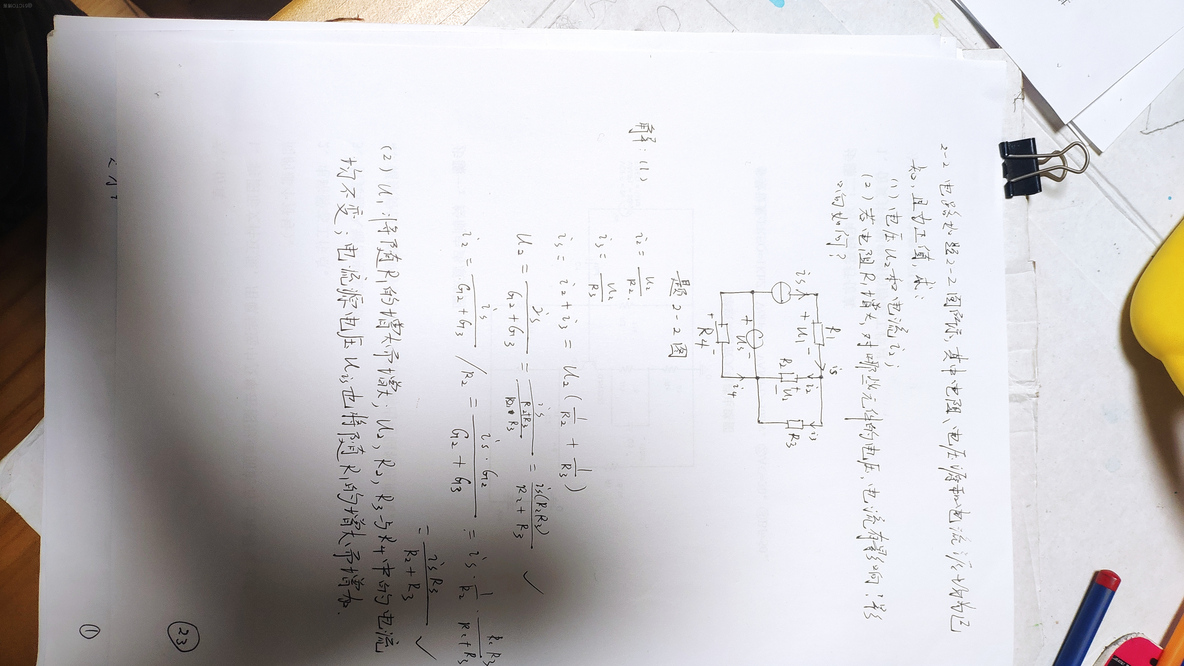 2-2 电路如题2-2图所示,其中电阻、电压源和电流源均为已
知,且为正值,求:
(1) 电压u₂和电流i₂;
(2) 若电阻R₁增大,对哪些元件的电压、电流有影响?影
响如何?
iₛ + u₁ - R₁ iₛ
+ uₛ - R₂ + u₂ - i₂
+ R₄ - i₄ R₃ i₃
题2-2图
解:(1) i₂ = u₂/R₂
i₃ = u₂/R₃
iₛ = i₂ + i₃ = u₂(1/R₂ + 1/R₃)
u₂ = iₛ/(G₂+G₃) = iₛ/((R₂+R₃)/(R₂·R₃)) = iₛ(R₂R₃)/(R₂+R₃) ✓
i₂ = iₛ/(G₂+G₃) / R₂ = iₛ·G₂/(G₂+G₃) = iₛ · 1/R₂ · R₂R₃/(R₂+R₃)
= iₛR₃/(R₂+R₃) ✓
(2) u₁将随R₁的增大而增大;u₂,R₂,R₃与R₄中的电流
均不变;电流源电压uᵢₛ也将随R₁的增大而增加.
23
①